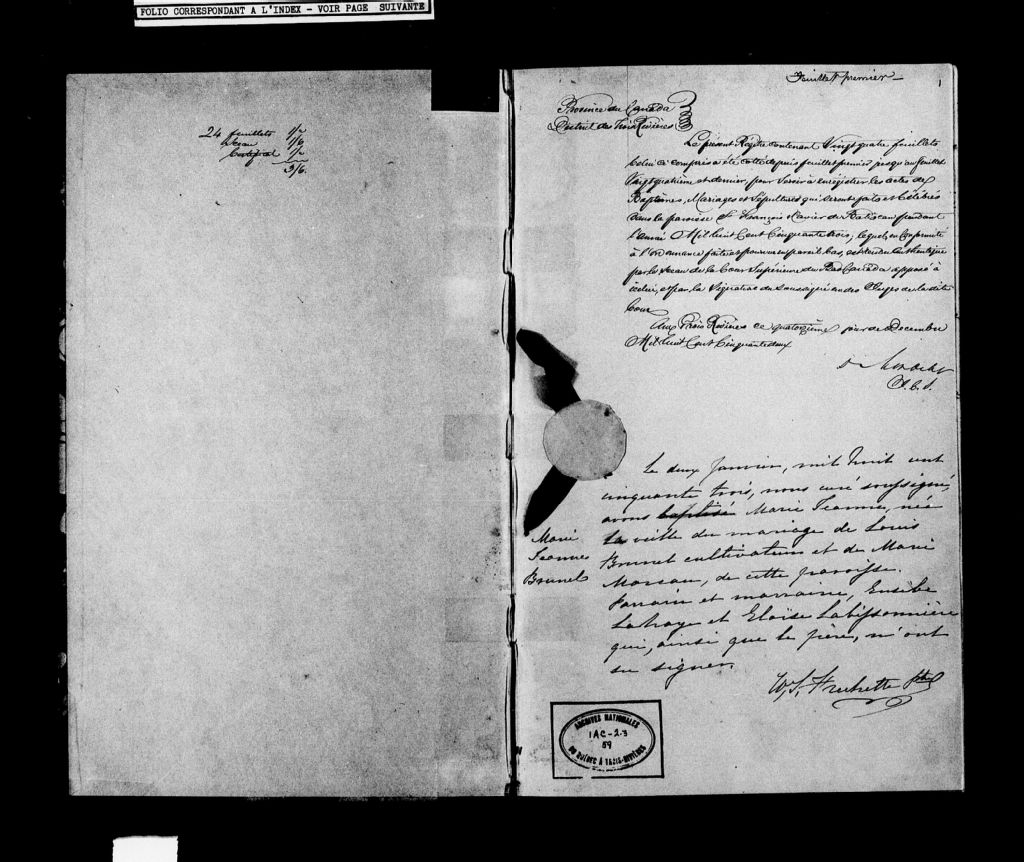 FOLIO CORRESPONDANT A L'INDEX - VOIR PAGE SUIVANTE
24 feuillets 1/"
Sceau 1/6
Certificat 1/"
3/6
Feuillet premier
1
Province du Canada
District des Trois Rivières
Le présent Régitre contenant Vingt quatre feuillets
Celui ci compris a été cotté depuis feuillet premier jusqu'au feuillet
Vingt quatrième et dernier, pour servir à enrégistrer les actes de
Baptêmes, Mariages et Sépultures qui seront faits et célébrés
dans la paroisse St François Xavier de Batiscan pendant
l'année Mil huit Cent Cinquante trois, lequel, en Conformité
à l'Ordonnance faite et pourvue en pareil Cas, est rendu authentique
par le Sceau de la Cour Supérieure du Bas Canada apposé à
icelui, et par la Signature du Soussigné un des Juges de la dite
Cour
Aux Trois Rivières ce quatorzième jour de Décembre
Mil huit Cent Cinquante deux
Le deux Janvier, mil huit cent
cinquante trois, nous curé soussigné,
avons baptisé Marie Jeanne, née
la veille du mariage de Louis
Marie
Jeanne
Brunel
Brunel cultivateur et de Marie
Marsau, de cette paroisse.
Parrain et marraine, Eusèbe
Lahaye et Eloïse Labissonnière
qui, ainsi que le père, n'ont
su signer.
W. S. Frechette Ptre
ARCHIVES NATIONALES
1AC-2.3
59
DU QUÉBEC À TROIS-RIVIÈRES